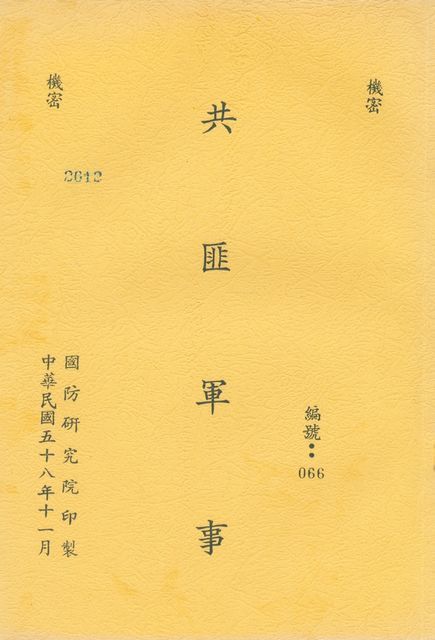 機密
編號：
066
共匪軍事
機密
2612
國防研究院印製
中華民國五十八年十一月